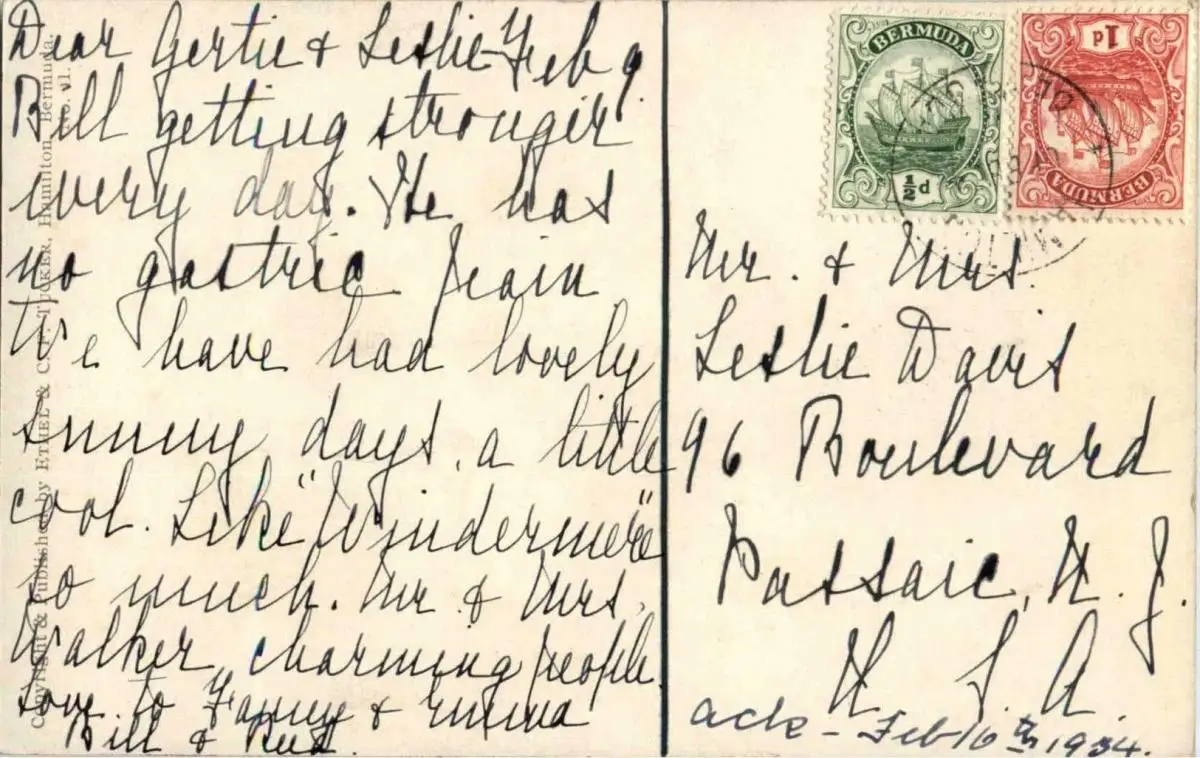 Dear Gertie & Leslie - Feb 9
Bill getting stronger
every day. He has
no gastric pain
We have had lovely
sunny days, a little
cool. Like "Windermere"
so much. Mr. & Mrs.
Walker, charming people.
Love to Fanny & Emma
Bill &
Copyright & Published by ETHEL & TUCKER, Hamilton, Bermuda.
BERMUDA
½d
BERMUDA
1d
Mr. & Mrs.
Leslie Davis
96 Boulevard
Passaic, N. J.
U. S. A.
ack - Feb 16th 1934.